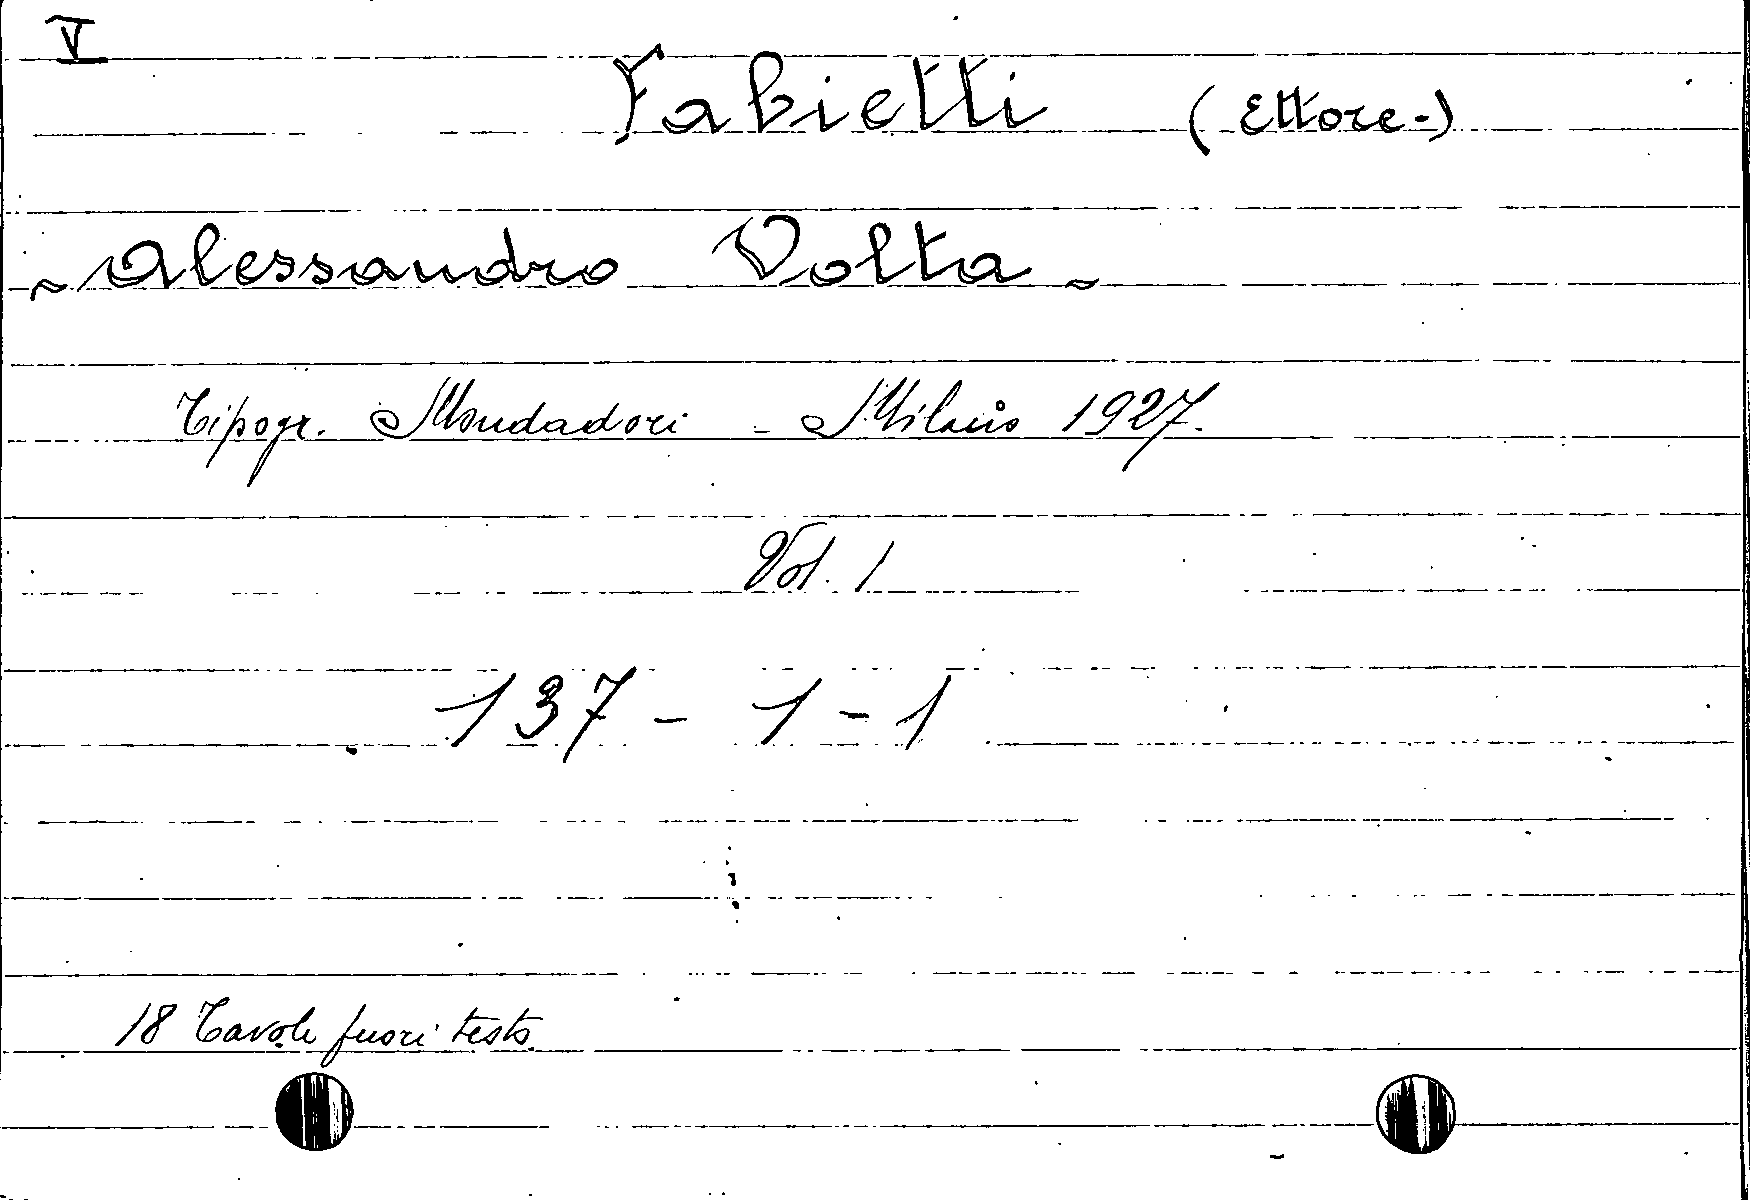 V
Fabietti (Ettore-)
~ Alessandro Volta ~
Tipogr. Mondadori - Milano 1927.
Vol. 1
137 - 1 - 1
18 Tavole fuori testo